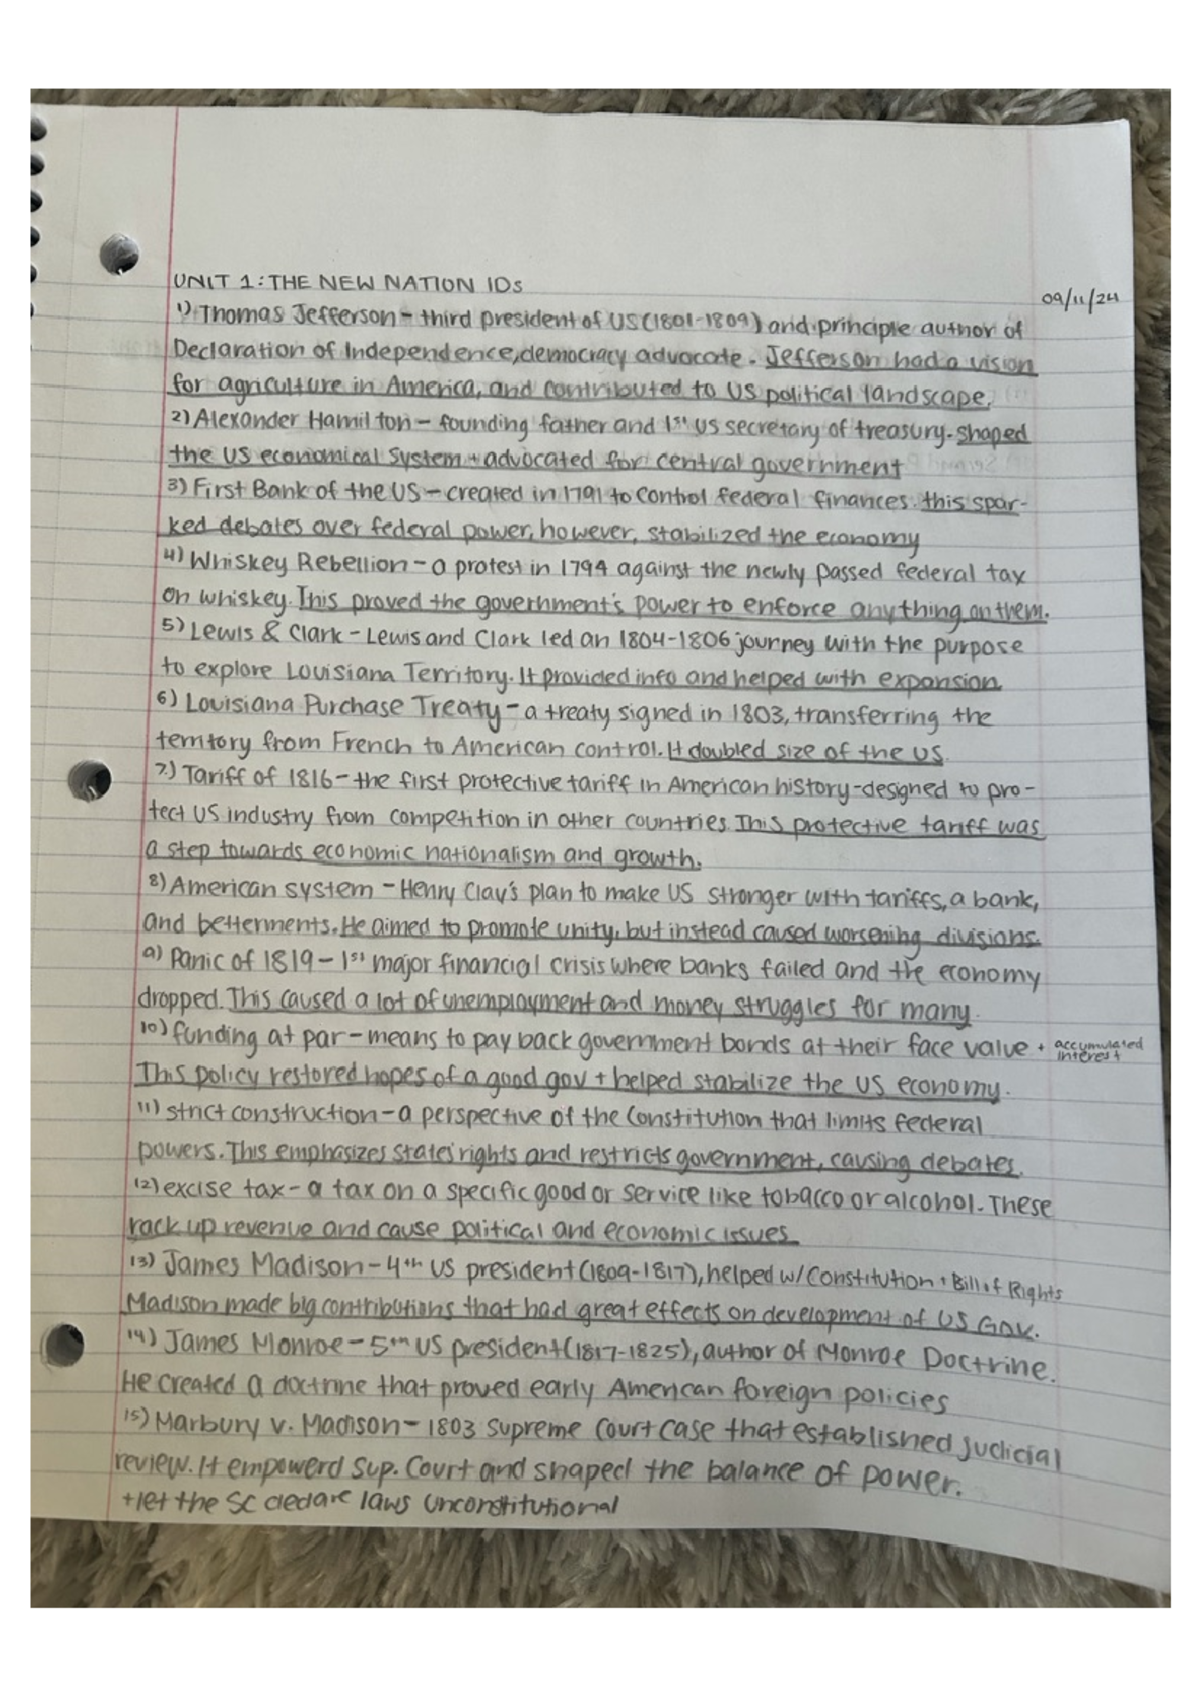 UNIT 1: THE NEW NATION IDs
09/11/24
1) Thomas Jefferson - third president of US (1801-1809) and principle author of
Declaration of Independence, democracy advocate. Jefferson had a vision
for agriculture in America, and contributed to US political landscape.
2) Alexander Hamilton - founding father and 1st US secretary of treasury. shaped
the US economical system + advocated for central government
3) First Bank of the US - created in 1791 to control federal finances. this spar-
ked debates over federal power, however, stabilized the economy
4) Whiskey Rebellion - a protest in 1794 against the newly passed federal tax
on whiskey. This proved the government's power to enforce anything on them.
5) Lewis & Clark - Lewis and Clark led an 1804-1806 journey with the purpose
to explore Louisiana Territory. It provided info and helped with expansion
6) Louisiana Purchase Treaty - a treaty signed in 1803, transferring the
territory from French to American control. It doubled size of the US.
7) Tariff of 1816 - the first protective tariff in American history - designed to pro-
tect US industry from competition in other countries. This protective tariff was
a step towards economic nationalism and growth.
8) American system - Henry Clay's plan to make US stronger with tariffs, a bank,
and betterments. He aimed to promote unity, but instead caused worsening divisions.
9) Panic of 1819 - 1st major financial crisis where banks failed and the economy
dropped. This caused a lot of unemployment and money struggles for many.
10) funding at par - means to pay back government bonds at their face value + accumulated interest
This policy restored hopes of a good gov + helped stabilize the US economy.
11) strict construction - a perspective of the Constitution that limits federal
powers. This emphasizes states' rights and restricts government, causing debates.
12) excise tax - a tax on a specific good or service like tobacco or alcohol. These
rack up revenue and cause political and economic issues
13) James Madison - 4th US president (1809-1817), helped w/ Constitution + Bill of Rights
Madison made big contributions that had great effects on development of US Gov.
14) James Monroe - 5th US president (1817-1825), author of Monroe Doctrine.
He created a doctrine that proved early American foreign policies
15) Marbury v. Madison - 1803 Supreme Court case that established judicial
review. It empowerd Sup. Court and shaped the balance of power.
+ let the SC declare laws unconstitutional